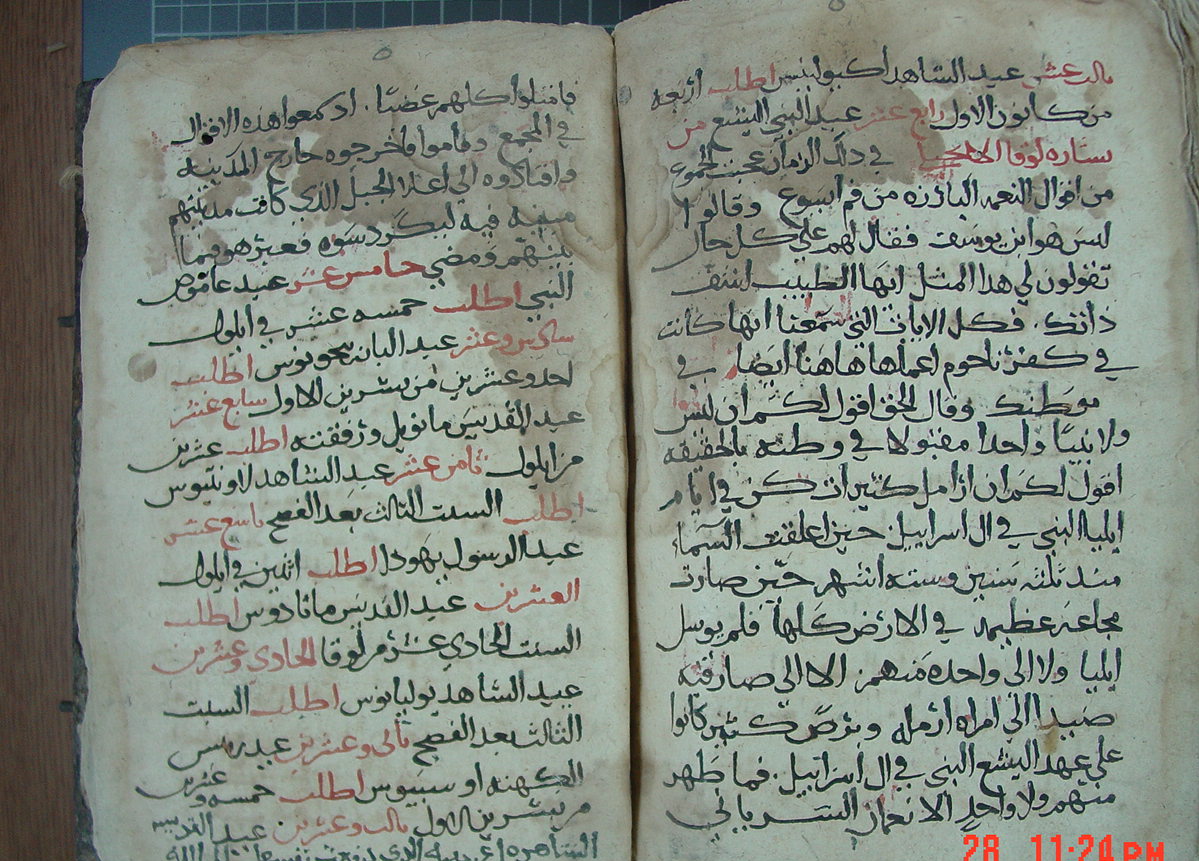 ثالث عشر عيد الشاهد اكيولينس اطلب اربعه
من كانون الاول رابع عشر عيد النبي اليشع من
بشاره لوقا الانجيلي في ذلك الزمان عجبت الجموع
من اقوال النعمه البارزه من فم ايسوع وقالوا
ليس هو ابن يوسف فقال لهم علي كل حال
تقولون لي هذا المثل ايها الطبيب اشف
ذاتك فكل الايات التي سمعنا انها كانت
في كفرناحوم اعملها هاهنا ايضا في
موطنك وقال الحق اقول لكم ان ليس
ولا نبيا واحدا مقبولا في وطنه بالحقيقه
اقول لكم ان ارامل كثيرات كن في ايام
ايليا النبي في ال اسراييل حين اغلقت السماء
منذ ثلثه سنين وسته اشهر حين صارت
مجاعه عظيمه في الارض كلها فلم يرسل
ايليا ولا الي واحده منهن الا الي صارفيه
صيدا الي امراه ارمله وبرص كثير كانوا
علي عهد اليشع النبي في ال اسراييل فما طهر
منهم ولا واحد الا نعمان السرياني
فامتلوا كلهم غضبا اد سمعوا هذه الاقوال
في المجمع وقاموا فاخرجوه خارج المدينه
واقتادوه الي اعلا الجبل الذي كانت مدينتهم
مبنيه فيه ليكردسوه فعبر هو فيما
بينهم ومضي خامس عشر عيد عاموص
النبي اطلب خمسه عشر في ايلول
سادس وعشر عيد البار اطلب
احد وعشرين من تشرين الاول سابع عشر
عيد القديس مانويل ورفقته اطلب عشرين
من ايلول ثامن عشر عيد الشاهد لاونتيوس
اطلب السبت الثالث بعد الفصح تاسع عشر
عيد الرسول يهودا اطلب اثنين في ايلول
العشرين عيد القديس ماتاديوس اطلب
السبت الحادي عشر من لوقا الحادي وعشرين
عيد الشاهد يوليانوس اطلب السبت
الثالث بعد الفصح تاني وعشرين عيد ريس
الكهنه اوسبيوس اطلب خمسه وعشرين
من تشرين الاول تالت وعشرين عيد القديسه
الشاهره